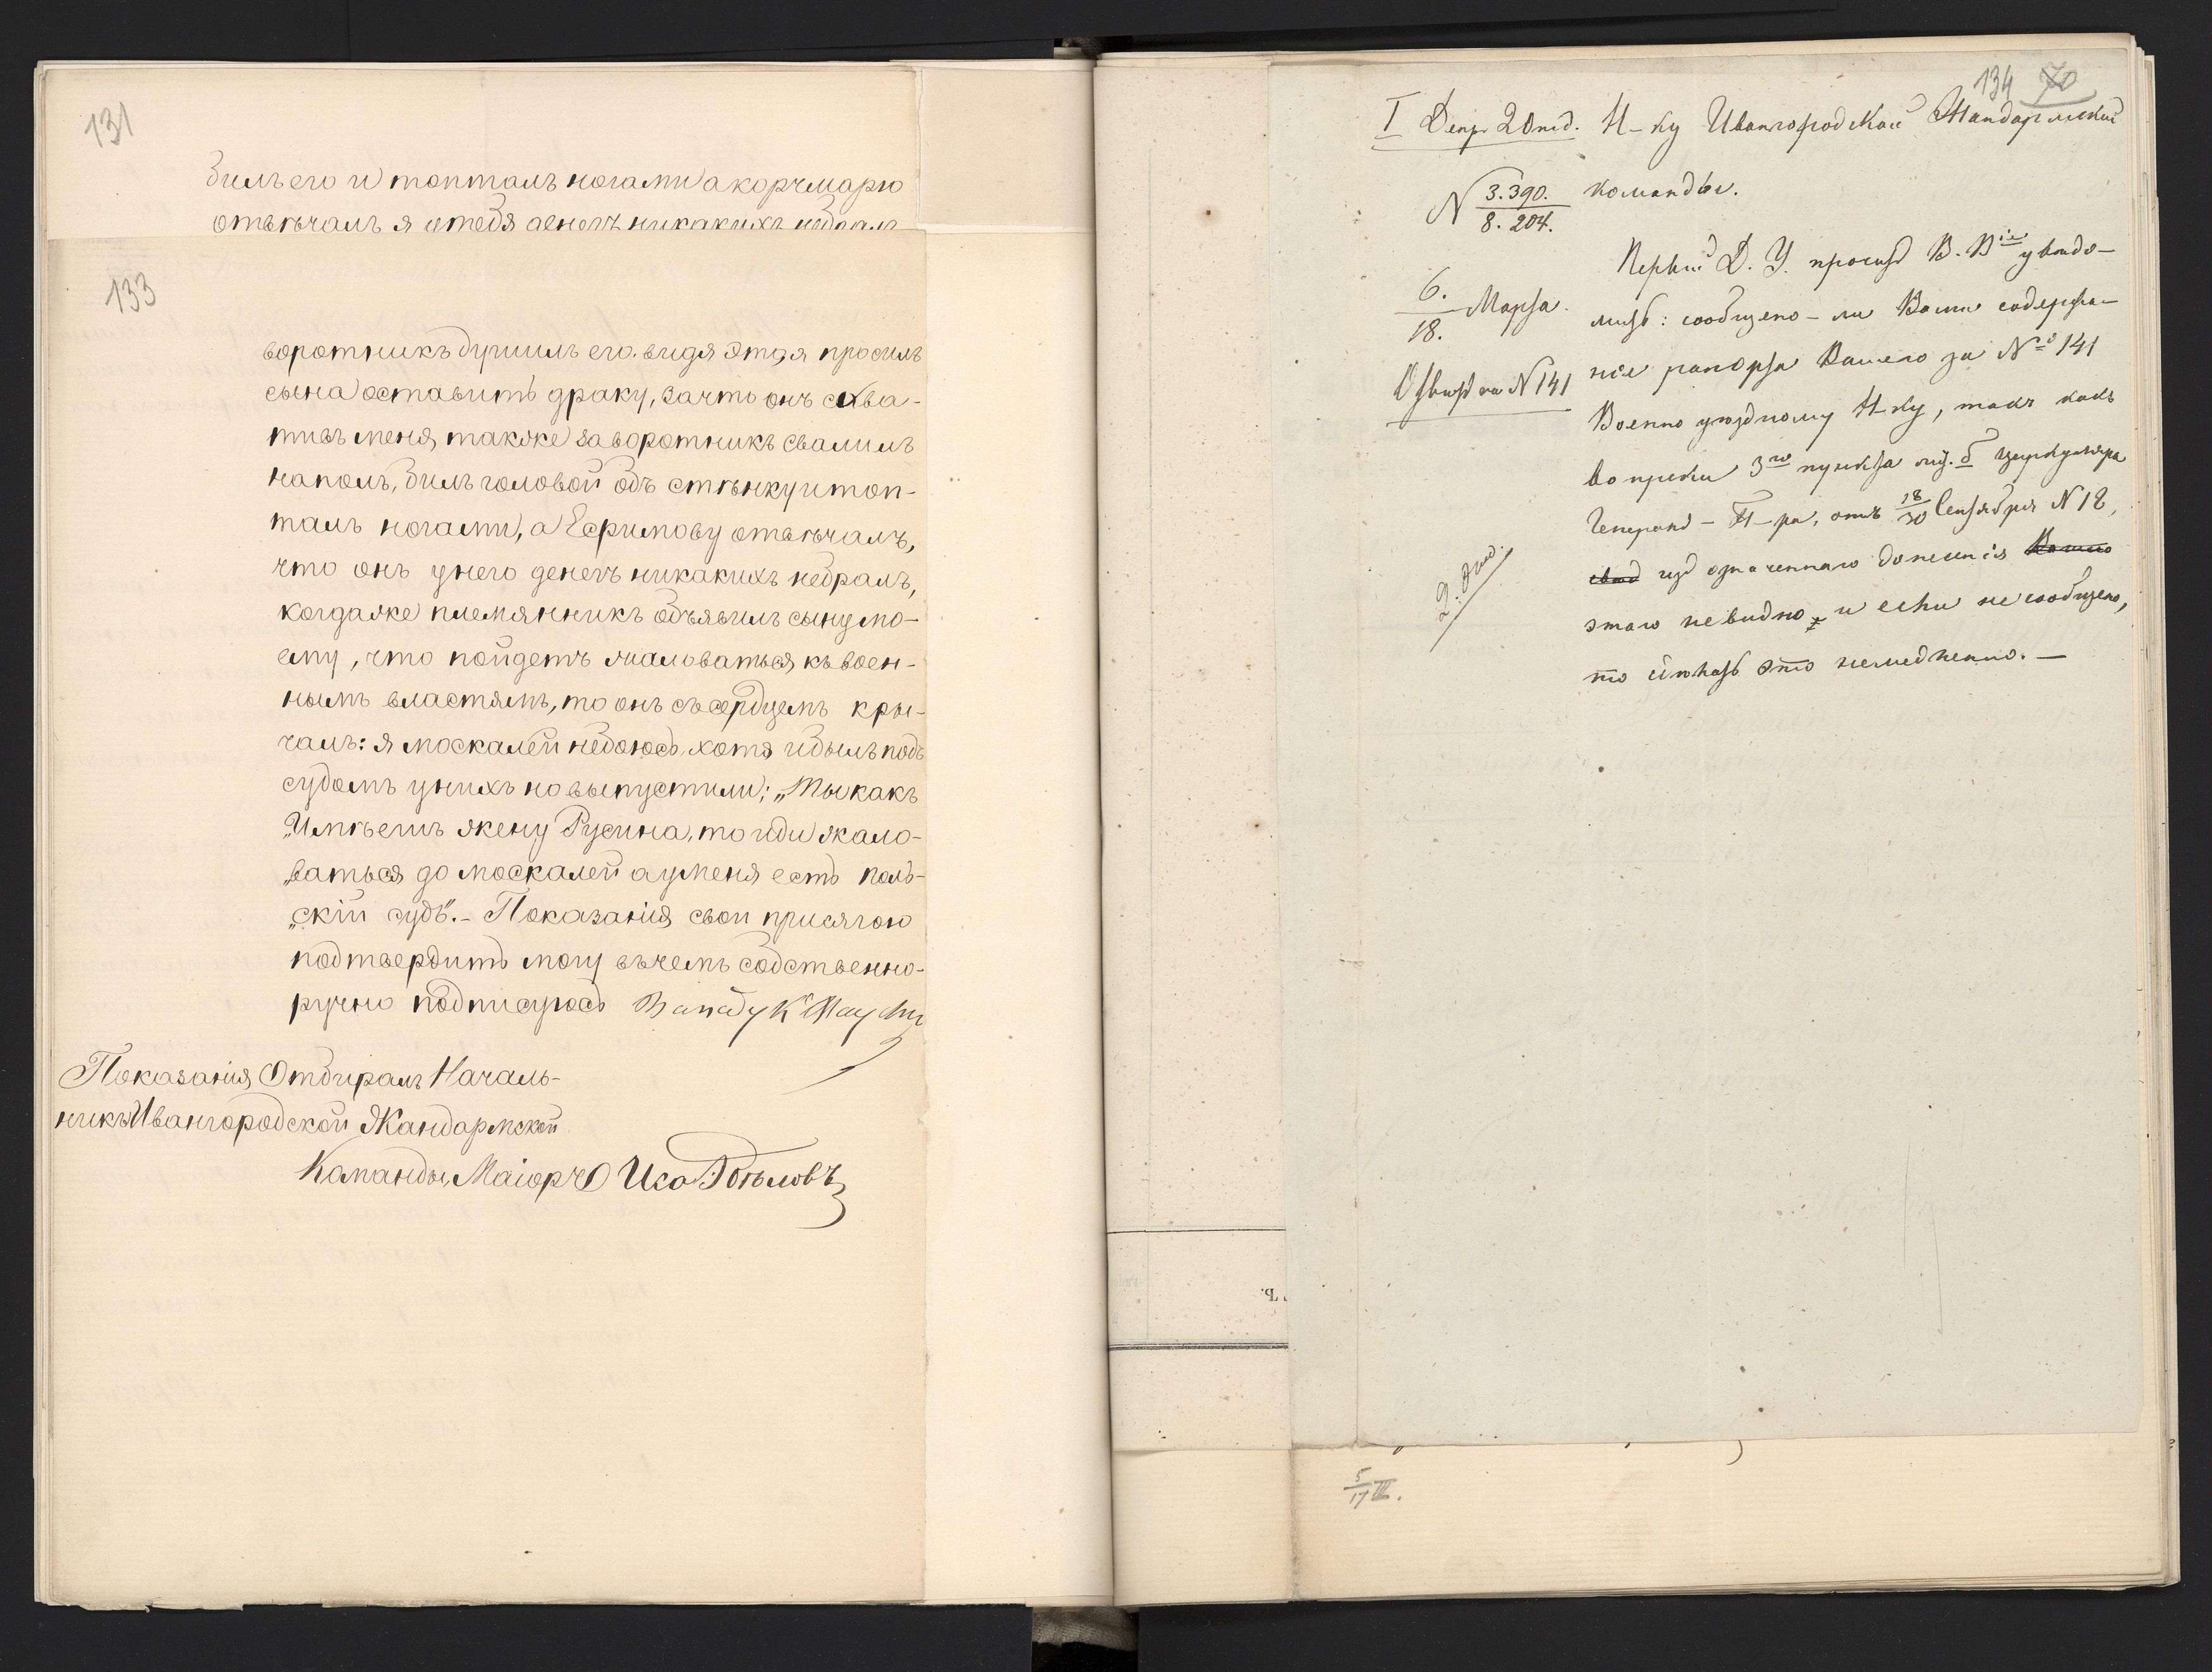 131
билъ его и топталъ ногами а корчмарю
отвѣчалъ я отебя денегъ никакихъ небралъ
133
воротникъ душилъ его. видя это, я просилъ
сына оставить драку, зачто онъ схва-
тивъ меня также заворотникъ свалилъ
наполъ, билъ головой объ стѣнку и топ-
талъ ногами, а Ефимову отвѣчалъ,
что онъ унего денегъ никакихъ небралъ,
когдаже племянникъ объявилъ сыну мо-
ему, что пойдетъ жаловаться къ воен-
нымъ властямъ, то онъ съ сердцемъ кры-
чалъ: я москалей небоюсь хотя и былъ подъ
судомъ унихъ но выпустили; „Ты какъ
„Имѣешь жену Русина, то иди жало-
„ваться до москалей а уменя есть поль-
„скій судъ". - Показанія свои присягою
подтвердить могу въ чемъ собственно-
ручно подписуюсь
Показанія Отбиралъ Началь-
никъ Ивангородской Жандармской
Команды, Маіоръ
134 70
I Деп. 2 Отд. Н-ку Ивангородской Жандармской
N 3.390. / 8.204. команды.
6. / 18. Марта.
Отвѣтъ на N 141
Первый Д. У. проситъ В. В іе увѣдо-
мить: сообщено-ли Вами содержа-
ніе рапорта Вашего за № 141
Военно уѣздному Н-ку, такъ какъ
вопреки 3го пункта лит. б циркуляра
Генералъ-П-ра, отъ 18/30 Сентября N 18,
изъ означеннаго донесенія Вашего
этого невидно, и если не сообщено,
то это немедленно. —
5/17 III.